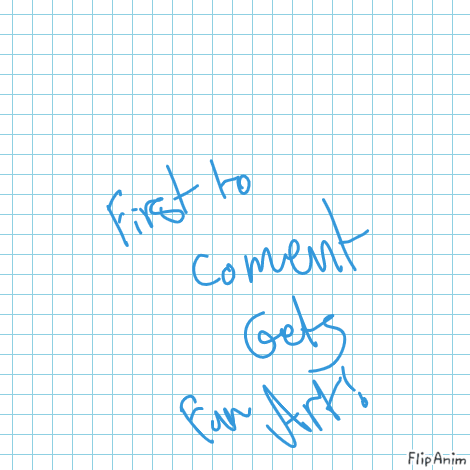 First to
Coment
Gets
Fan Art!
FlipAnim